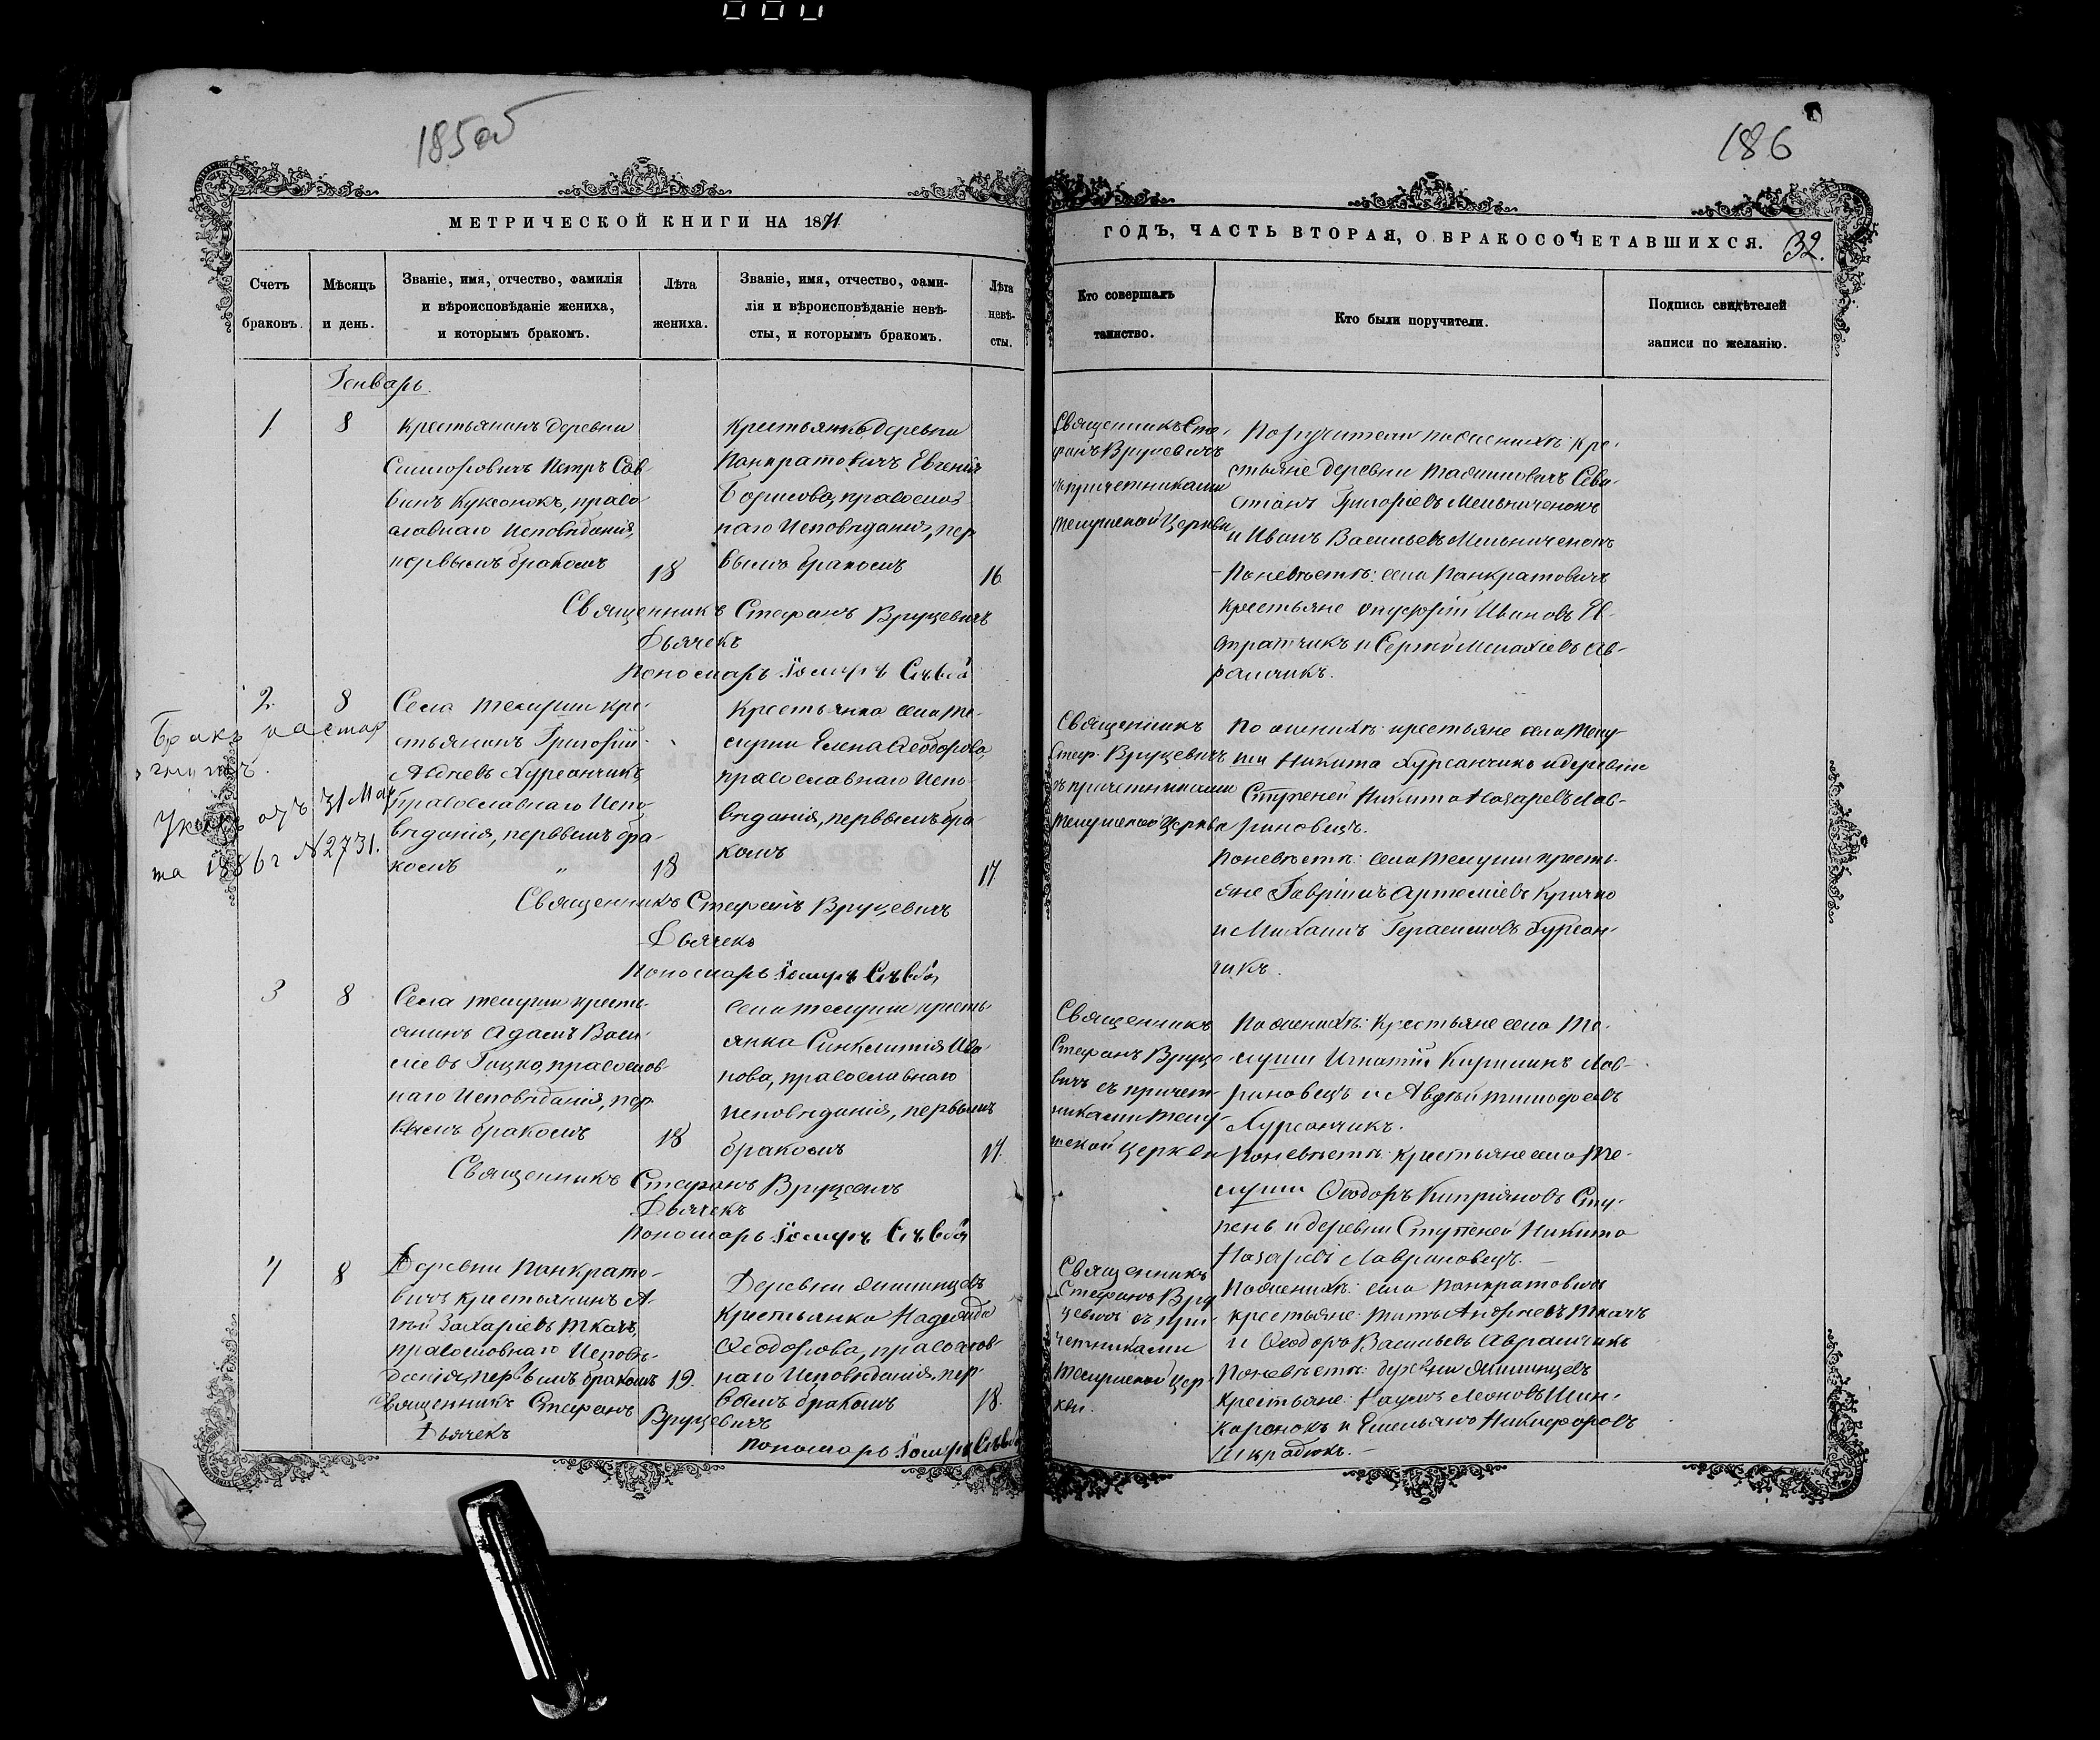 185об
186
МЕТРИЧЕСКОЙ КНИГИ НА 1871
ГОДЪ, ЧАСТЬ ВТОРАЯ, О БРАКОСОЧЕТАВШИХСЯ.
32.
Счетъ
браковъ.
Мѣсяцъ
и день.
Званіе, имя, отчество, фамилія
и вѣроисповѣданіе жениха,
и которымъ бракомъ.
Лѣта
жениха.
Званіе, имя, отчество, фами-
лія и вѣроисповѣданіе невѣ-
сты, и которымъ бракомъ.
Лѣта
невѣ-
сты.
Кто совершалъ
таинство.
Кто были поручители.
Подпись свидѣтелей
записи по желанію.
Генварь.
1
8
Крестьянинъ деревни
Петръ Сав-
винъ Куксонокъ, право
славнаго Исповѣданія,
первымъ бракомъ
18
Крестьянка деревни
Панкратовичъ Евгенія
Борисова, православ
наго Исповѣданія, пер
вымъ бракомъ
16
Священникъ Сте-
фанъ Вруцевичъ
съ причетниками
Телушской Церкви
Поручители по женихѣ: кре-
стьяне деревни Сева-
стіанъ Григоріевъ Мельниченокъ
и Иванъ Васильевъ Мельниченокъ
По невѣстѣ: села Панкратовичъ
крестьяне Онуфрій Ивановъ Ев-
стратчикъ и Сергѣй Ав-
рамчикъ.
Священникъ Стефанъ Вруцевичъ
Дьячекъ
Пономарь
2.
8
Бракъ расторг
Указъ отъ 31 Мар
та 1886 г № 2731.
Села Телуши кре-
стьянинъ Григорій
Авдіевъ Хурсанчикъ,
Православнаго Испо
вѣданія, первымъ бра
комъ
18
Крестьянка села Те-
луши Елена Ѳеодорова,
православнаго Испо-
вѣданія, первымъ бра-
комъ
17.
Священникъ
Стеф. Вруцевичъ
съ причетниками
Телушской Церкви
По женихѣ: крестьяне села Телу
ши Никита Хурсанчикъ и деревни
Ступеней Никита Назаревъ Лав-
риновецъ.
По невѣстѣ: села Телуши кресть-
яне Гавріилъ Артеміевъ Кричко
и Михаилъ Герасимовъ Хурсан-
чикъ.
Священникъ Стефанъ Вруцевичъ
Дьячекъ
Пономарь
3
8
Села Телуши кресть-
янинъ Адамъ Васи-
ліевъ Гоцко, православ-
наго Исповѣданія, пер
вымъ бракомъ
18
Села Телуши кресть-
янка Синклитія Ива-
нова, православнаго
исповѣданія, первымъ
бракомъ
17.
Священникъ
Стефанъ Вруце-
вичъ съ причет-
никами Телу-
шской Церкви
По женихѣ: Крестьяне села Те-
луши Игнатій Кирилинъ Лав-
риновецъ и Авдѣй Тимофеевъ
Хурсанчикъ.
По невѣстѣ: крестьяне села Те-
луши Ѳеодоръ Кипріяновъ Сту-
пень и деревни Ступеней Никита
Назаревъ Лавриновецъ. —
Священникъ Стефанъ Вруцевичъ
Дьячекъ
Пономарь
4
8
Деревни Панкрато-
вичъ крестьянинъ А-
гѣй Захаріевъ Ткачъ,
православнаго Исповѣ-
данія, первымъ бракомъ
19.
Деревни
крестьянка Надежда
Ѳеодорова, православ-
наго Исповѣданія, пер-
вымъ бракомъ
18.
Священникъ
Стефанъ Вру
цевичъ съ при-
четниками
Телушской Цер-
кви.
По женихѣ: села Панкратовичъ
крестьяне: Титъ Андреевъ Ткачъ
и Ѳеодоръ Васильевъ Аврамчикъ
По невѣстѣ: деревни
крестьяне: Наумъ Леоновъ Шин-
каронокъ и Емельянъ Никифоровъ
Священникъ Стефанъ Вруцевичъ
Дьячекъ
Пономарь